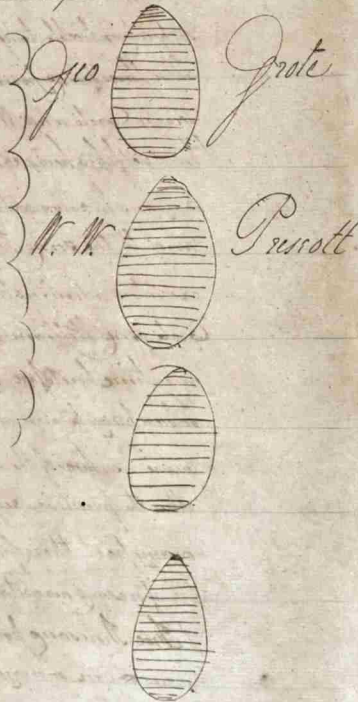 Geo Grote
W. W. Prescott